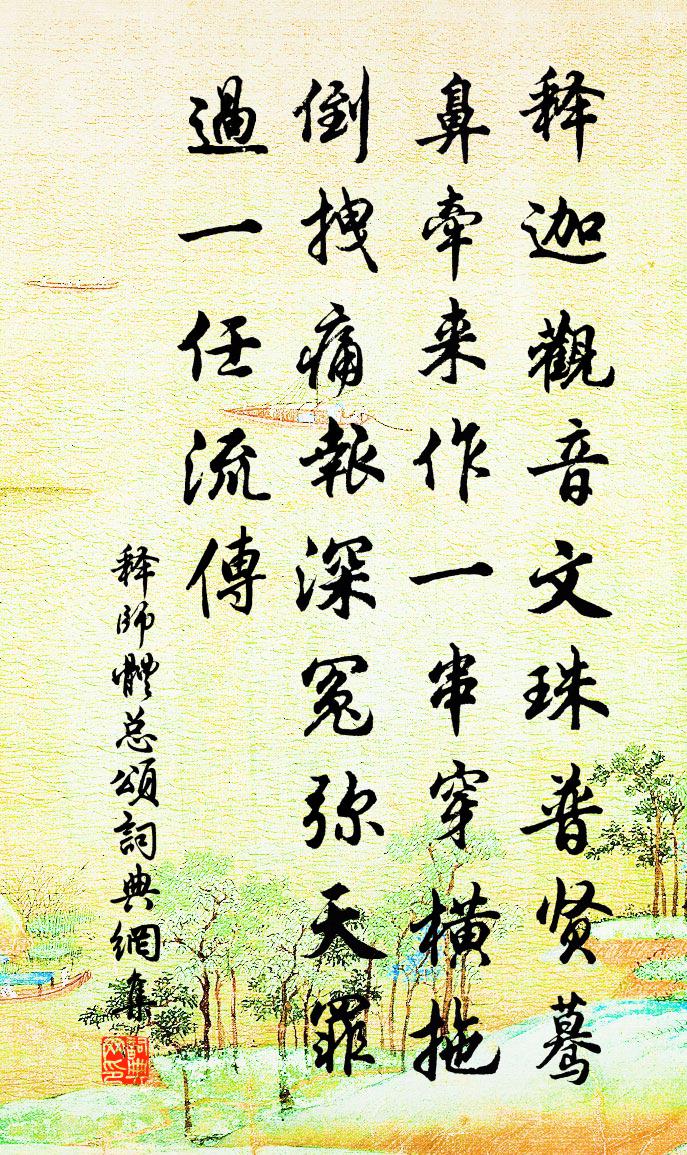 释迦觀音文珠普贤驀
鼻牽来作一串穿横拖
倒拽痛報深冤弥天罪
過一任流傳
释师體总頌詞典網集